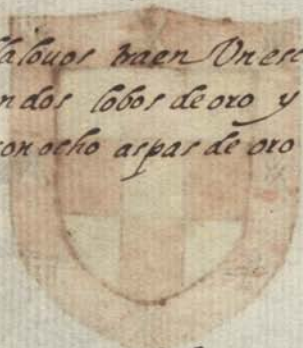 alouos traen Vn esc
n dos lobos de oro y
con ocho aspas de oro